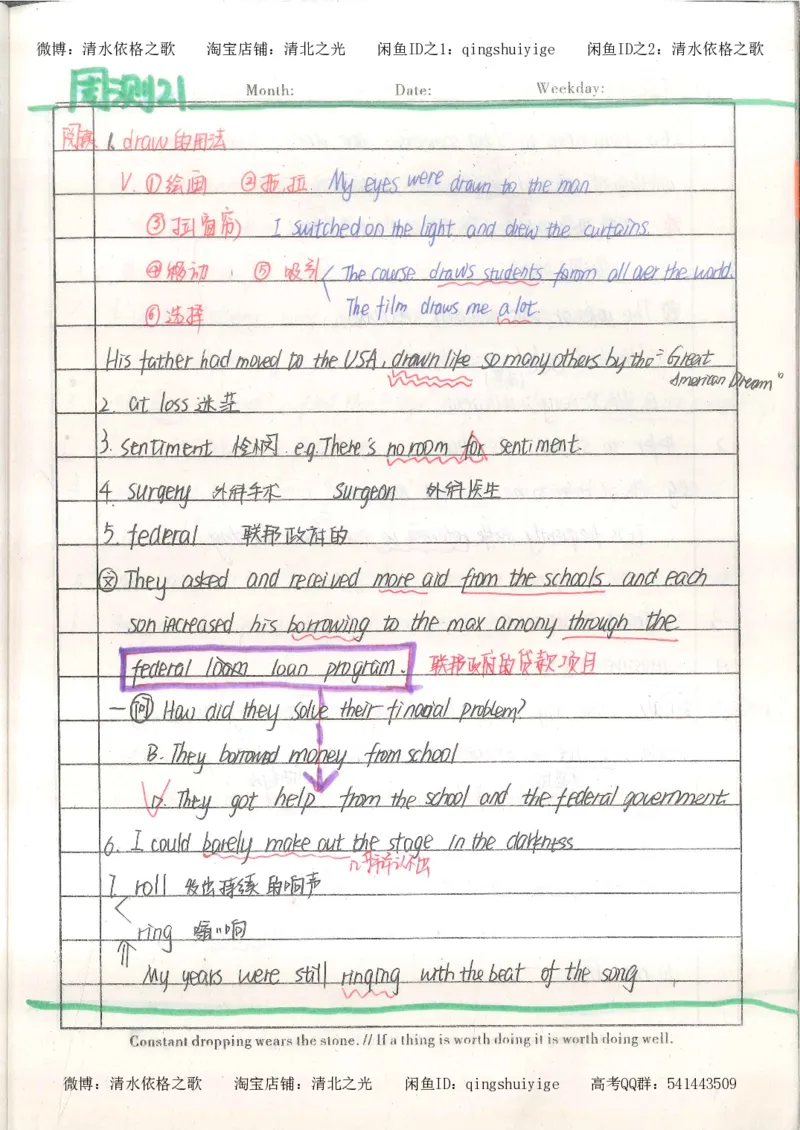 微博：清水依格之歌 淘宝店铺：清北之光 闲鱼ID之1：qingshuiyige 闲鱼ID之2：清水依格之歌
周测21 Month: Date: Weekday:
阅读 1. draw的用法
V. ①绘画 ②拖,拉. My eyes were drawn to the man
③拉(窗帘) I switched on the light and drew the curtains.
④移动 ⑤ 吸引 The course draws students form all over the world.
⑥选择 The film draws me a lot
His father had moved to the USA, drawn like so many others by the "Great
American Dream"
2. at loss 迷茫
3. sentiment 怜悯. e.g. There's no room for sentiment.
4. surgery 外科手术 surgeon 外科医生
5. federal 联邦政府的
文 They asked and received more aid from the schools, and each
son increased his borrowing to the max amony through the
federal loan program. 联邦政府的贷款项目
问 How did they solve their finacial problem?
B. They borrowed money from school
D. They got help from the school and the federal government.
6. I could barely make out the stage in the darkness
7. roll 发出持续的响声
ring 嗡嗡响
My years were still ringing with the beat of the song
Constant dropping wears the stone. // If a thing is worth doing it is worth doing well.
微博：清水依格之歌 淘宝店铺：清北之光 闲鱼ID：qingshuiyige 高考QQ群：541443509